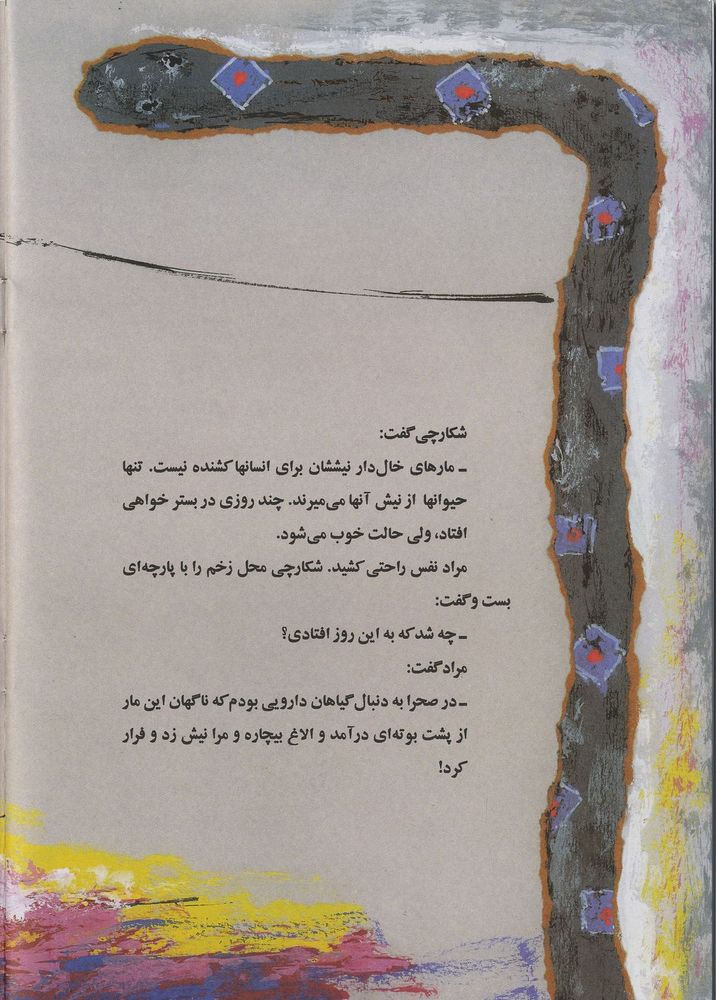 شکارچی گفت:
ـ مارهای خال‌دار نیششان برای انسانها کشنده نیست. تنها
حیوانها از نیش آنها می‌میرند. چند روزی در بستر خواهی
افتاد، ولی حالت خوب می‌شود.
مراد نفس راحتی کشید. شکارچی محل زخم را با پارچه‌ای
بست و گفت:
ـ چه شد که به این روز افتادی؟
مراد گفت:
ـ در صحرا به دنبال گیاهان دارویی بودم که ناگهان این مار
از پشت بوته‌ای درآمد و الاغ بیچاره و مرا نیش زد و فرار
کرد!